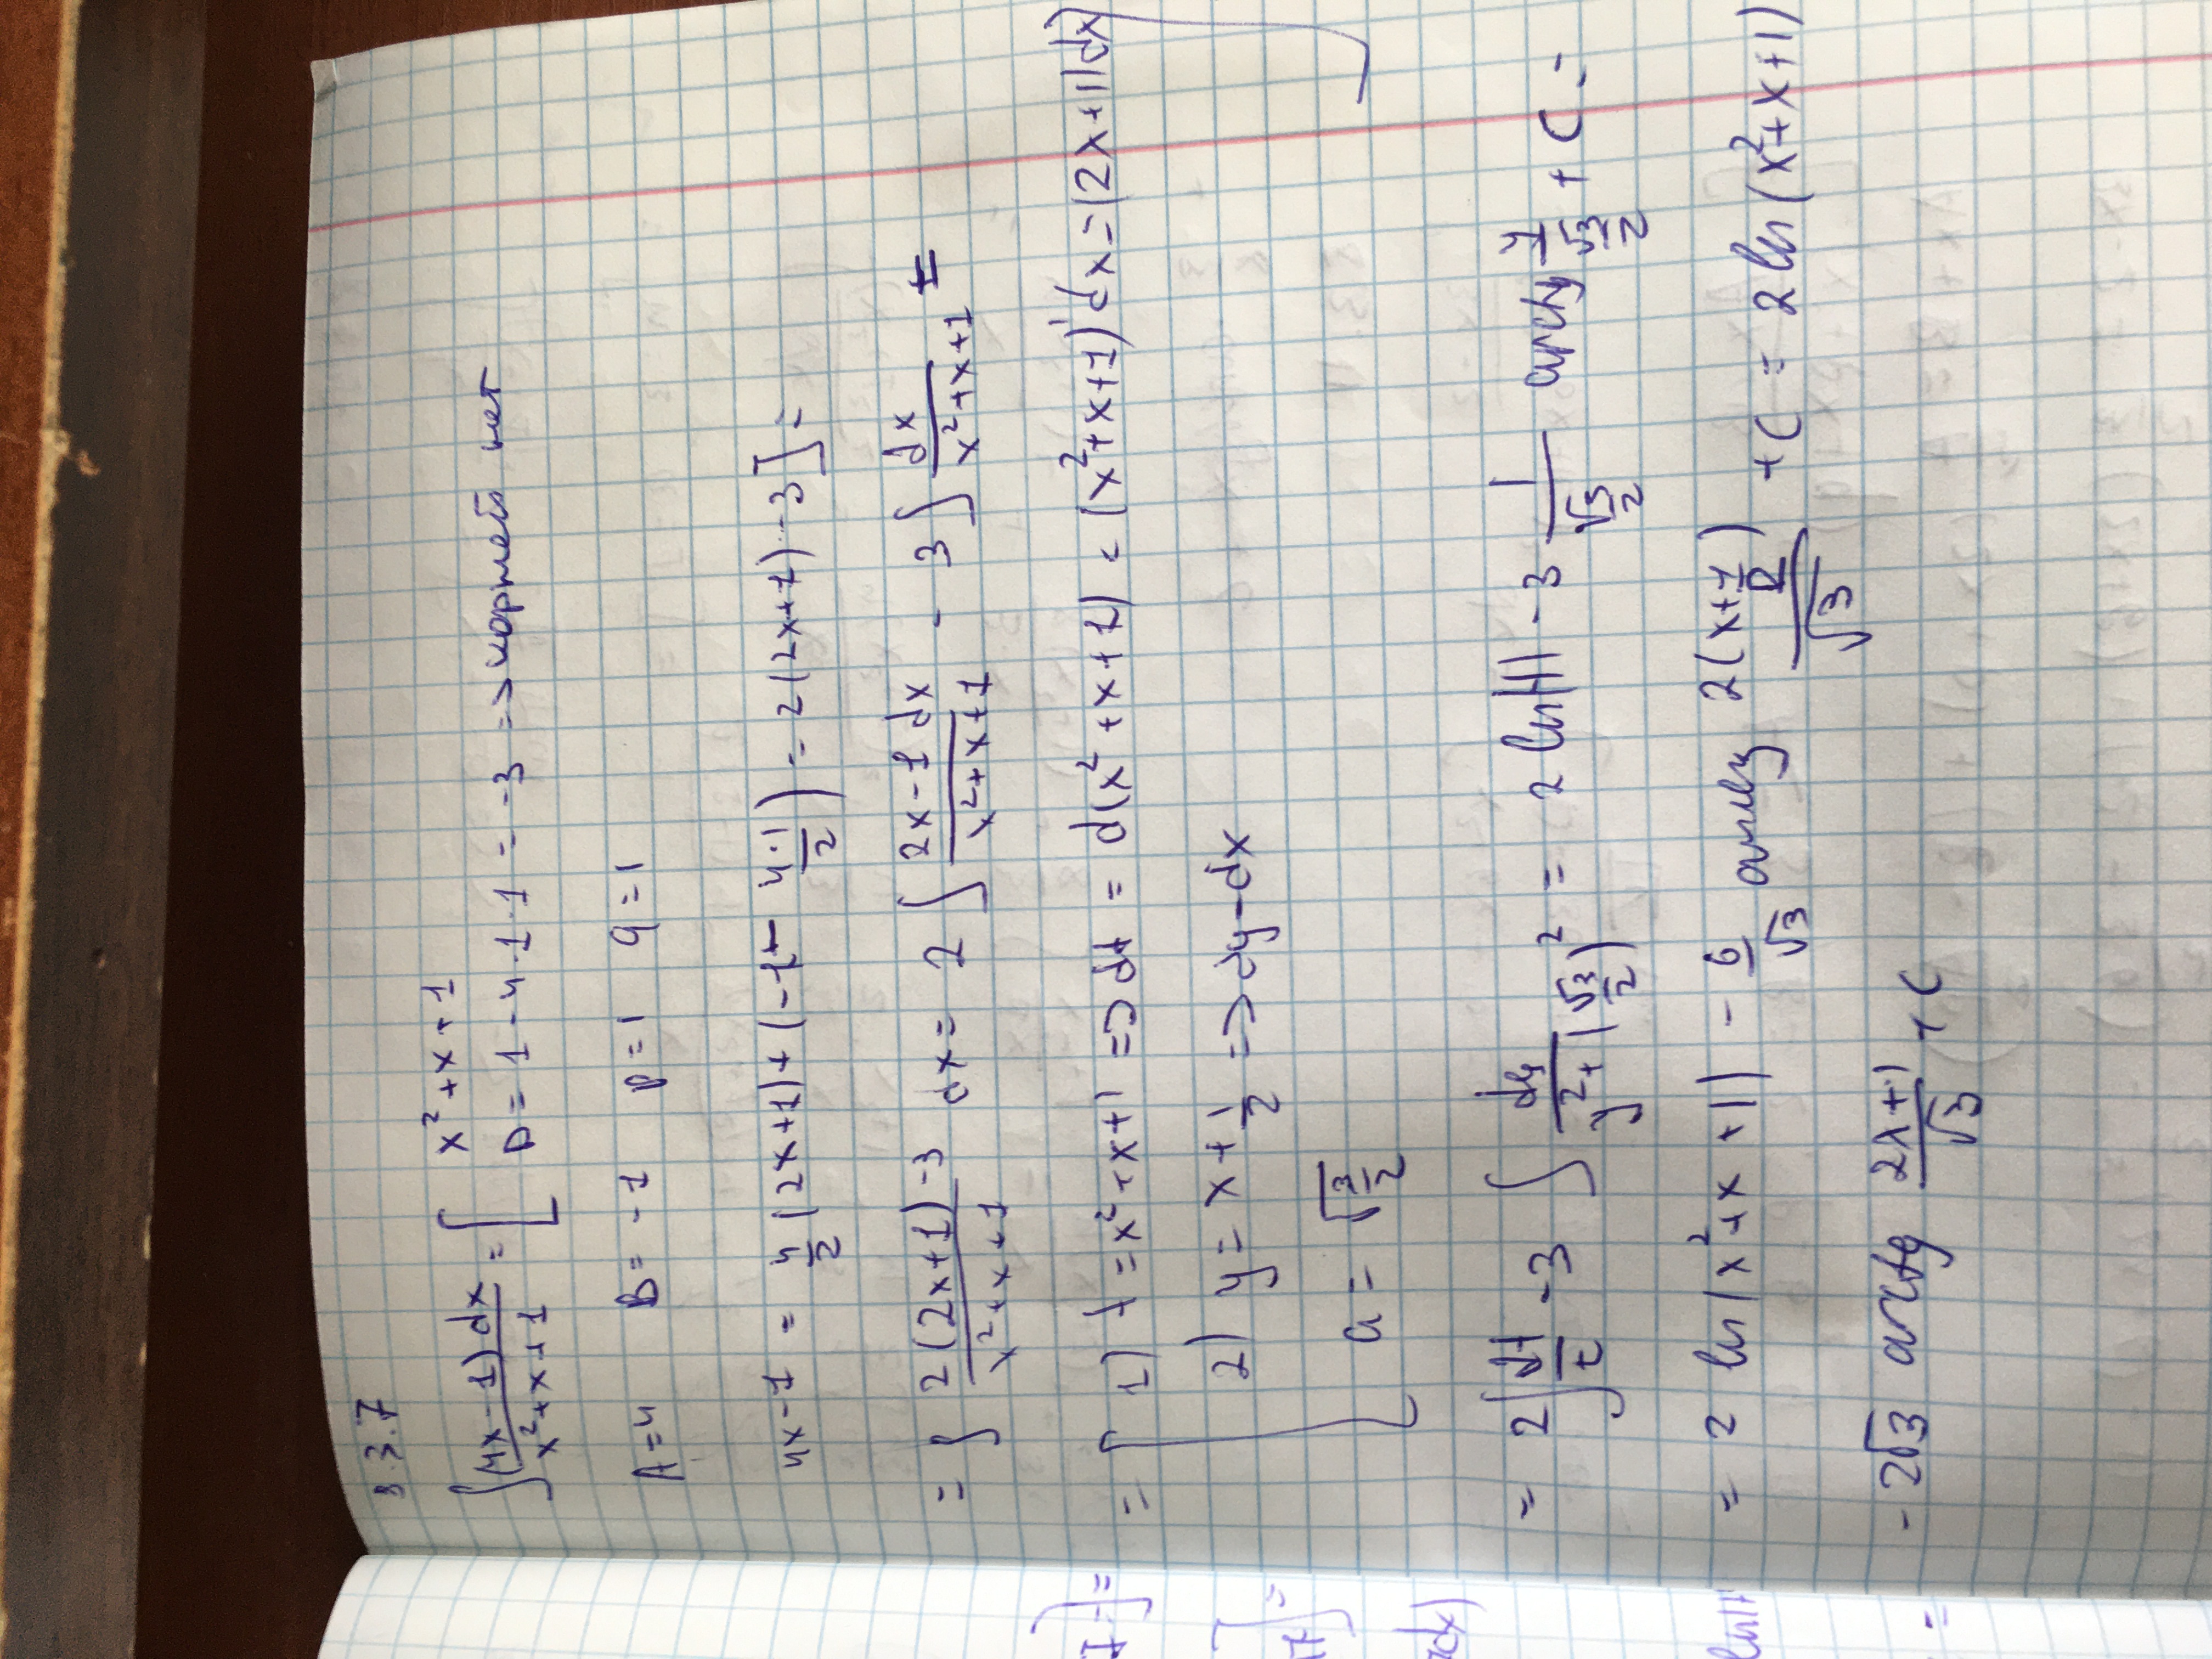 8.3.7
∫ (4x-1) dx / x²+x+1 = [ x²+x+1
D = 1-4·1·1 = -3 => корней нет
A=4 B=-1 p=1 q=1
4x-1 = 4/2 (2x+1)+(-1- 4·1/2) = 2(2x+1)-3] =
= ∫ 2(2x+1)-3 / x²+x+1 dx = 2 ∫ 2x-1 dx / x²+x+1 - 3 ∫ dx / x²+x+1 =
= [ 1) t = x²+x+1 => dt = d(x²+x+1) = (x²+x+1)'dx = (2x+1)dx ]
2) y = x+1/2 => dy=dx
a = √3/2
= 2∫ dt/t - 3 ∫ dy / y²+(√3/2)² = 2 ln|t| - 3 1 / √3/2 arctg y / √3/2 + C =
= 2 ln|x²+x+1| - 6/√3 arctg 2(x+1/2) / √3 + C = 2 ln(x²+x+1)
- 2√3 arctg 2x+1 / √3 + C
7]=
17]=
dx)
ln|t|
=